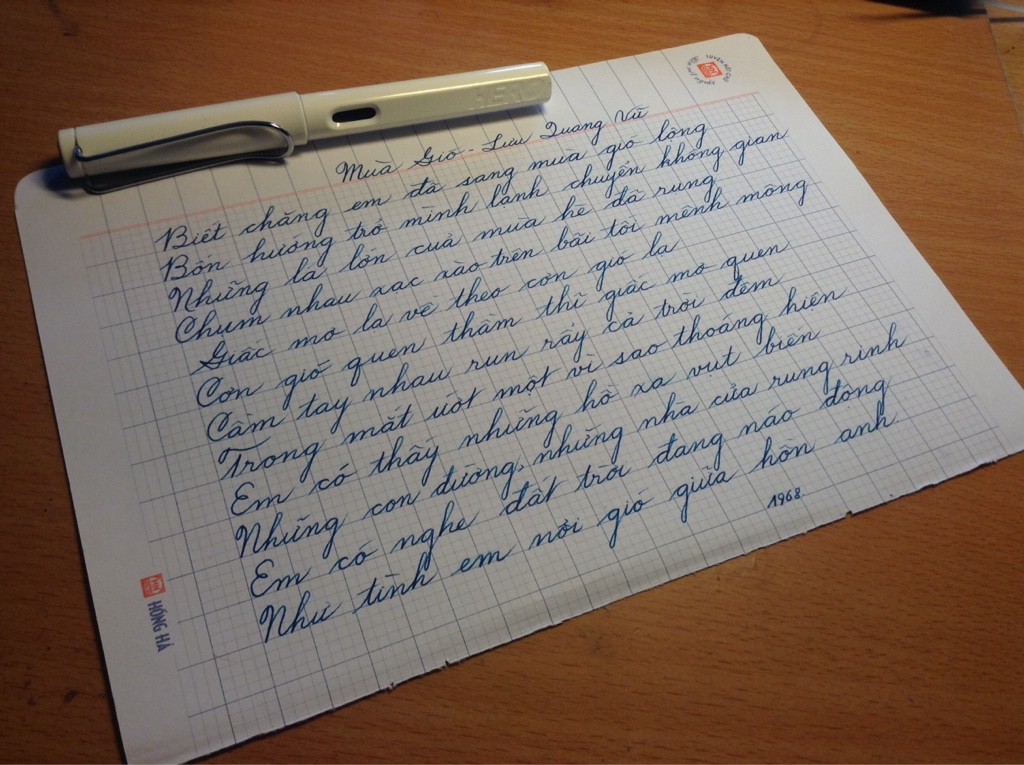 HERO
LUYỆN NÉT CHỮ
Mùa Gió - Lưu Quang Vũ
Biết chăng em đã sang mùa gió lộng
Bốn hướng trở mình lạnh chuyển không gian
Những lá lớn cuả mùa hè đã rụng
Chụm nhau xạc xào trên bãi tối mênh mông
Giấc mơ lạ về theo cơn gió lạ
Cơn gió quen thầm thì giấc mơ quen
Cầm tay nhau run rẩy cả trời đêm
Trong mắt ướt một vì sao thoáng hiện
Em có thấy những hồ xa vụt biến
Những con đường, những nhà cửa rung rinh
Em có nghe đất trời đang náo động
Như tình em nổi gió giữa hồn anh
1968
HỒNG HÀ